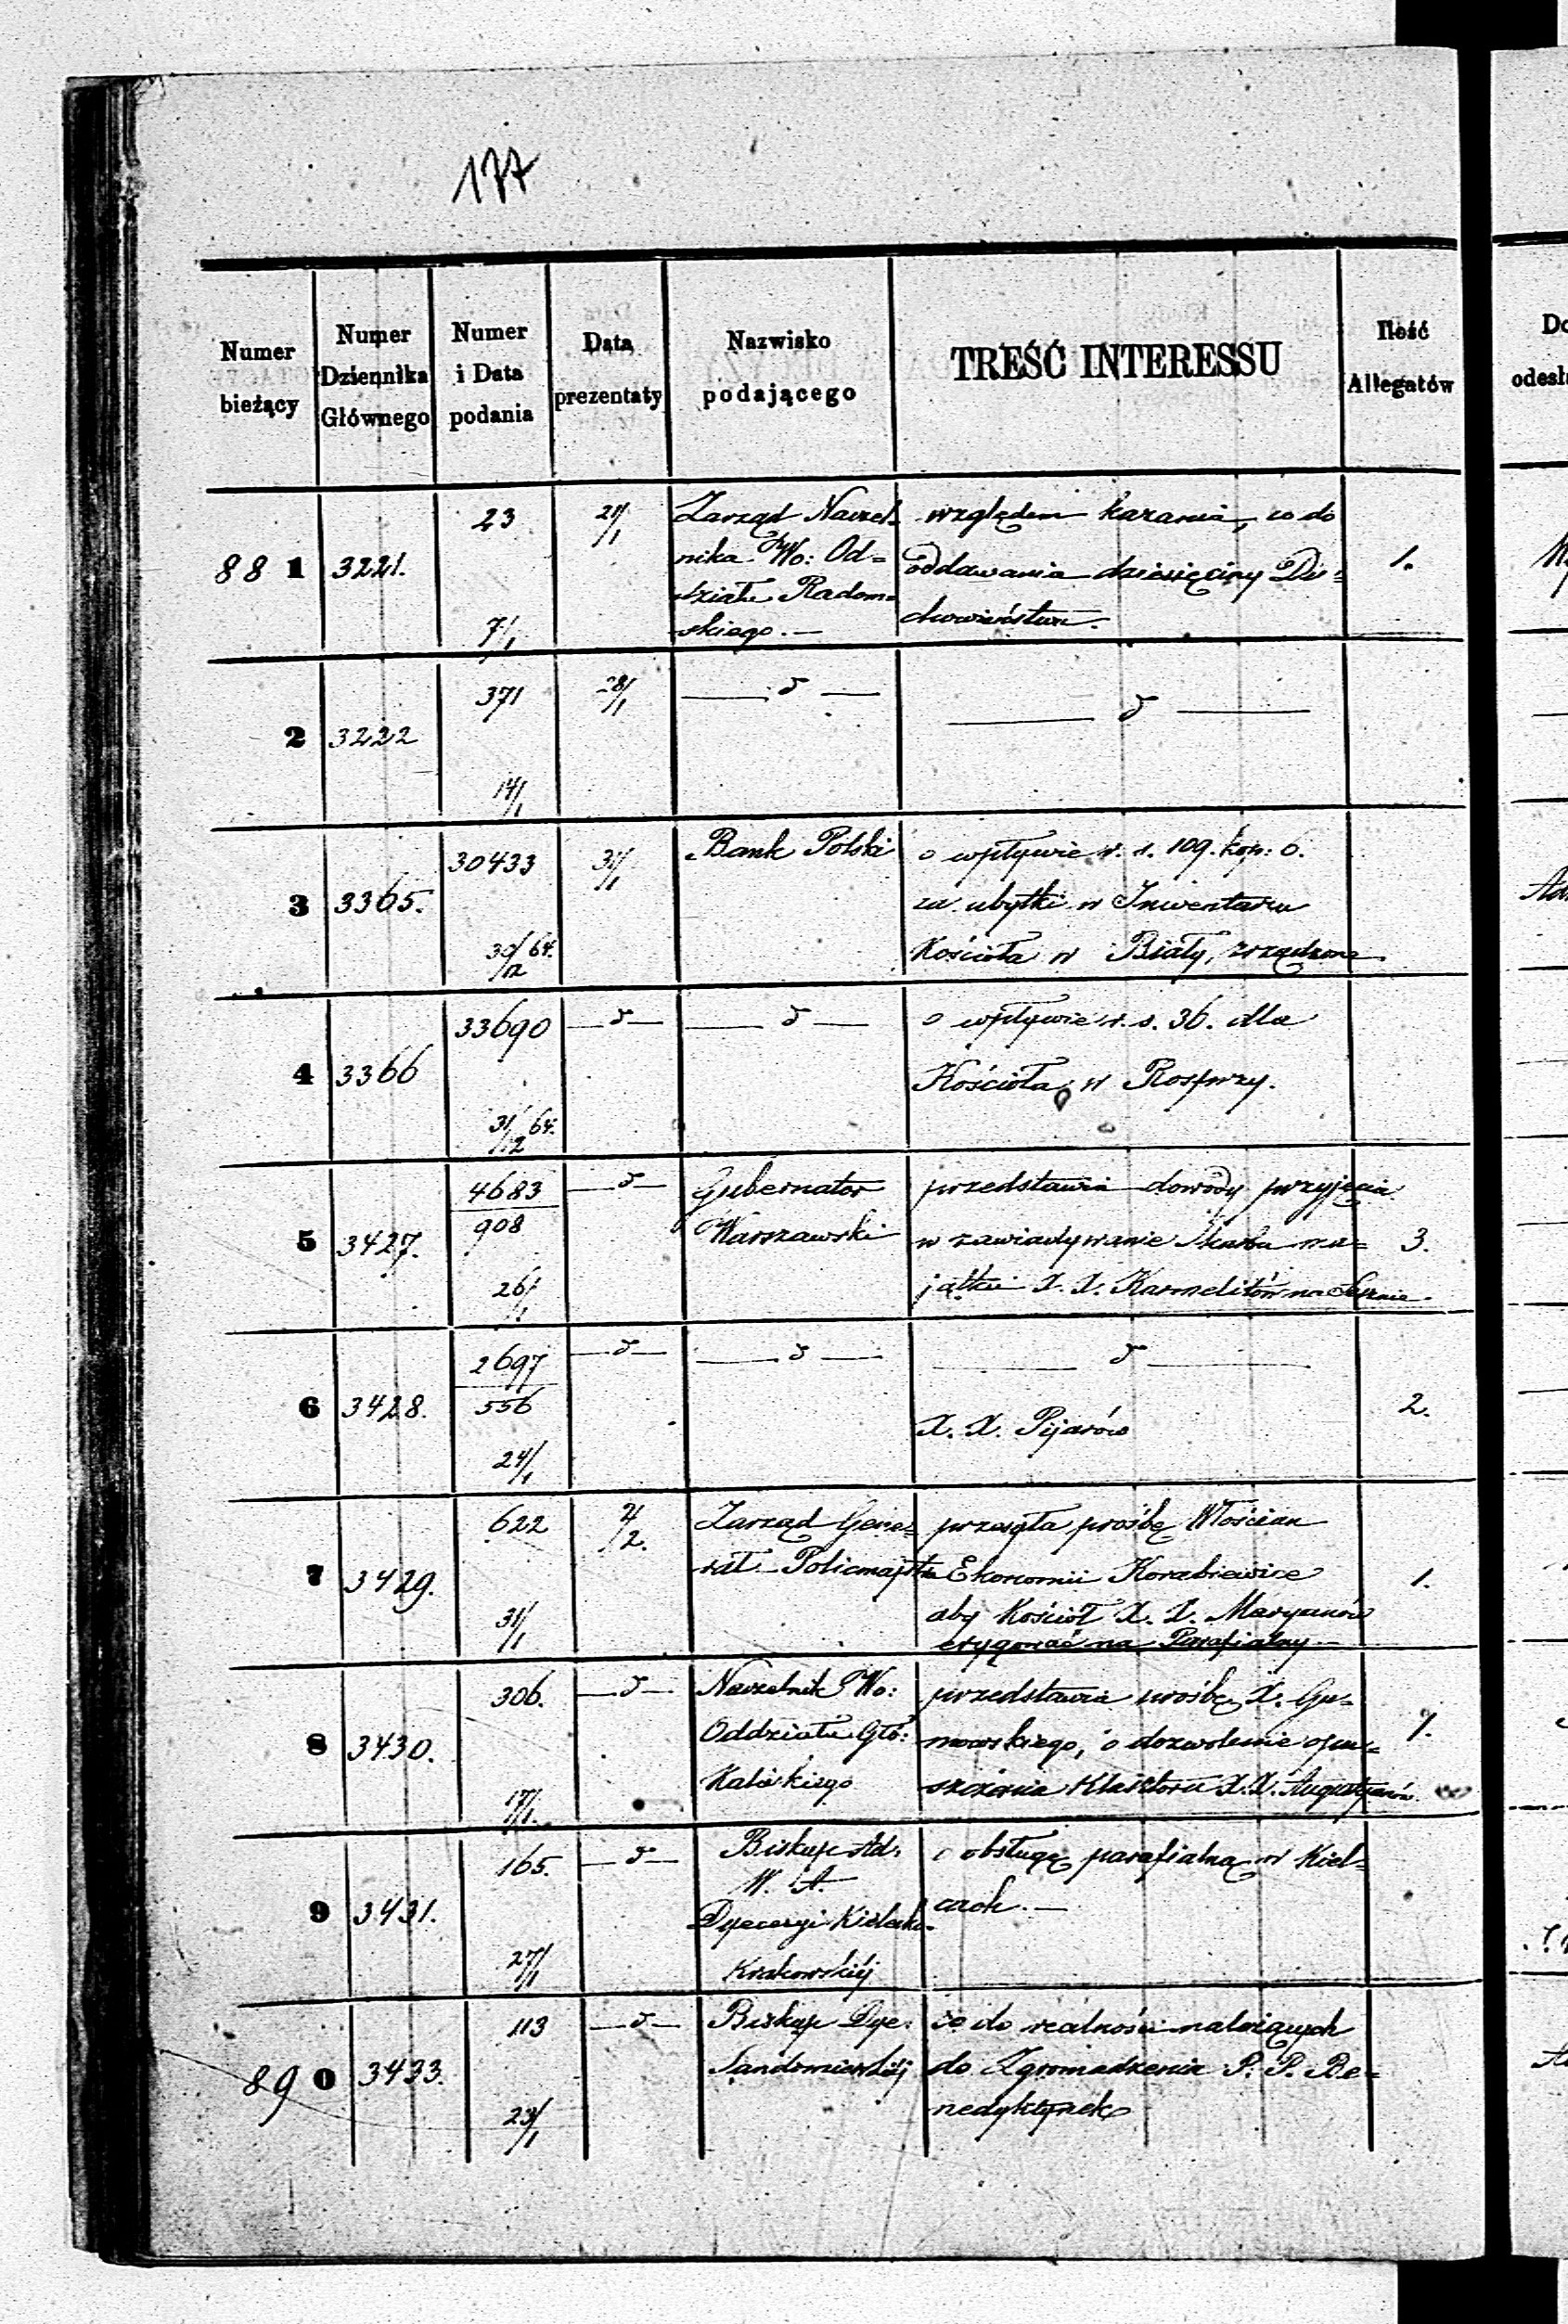 177
Numer bieżący
Numer Dziennika Głównego
Numer i Data podania
Data prezentaty
Nazwisko podającego
TREŚĆ INTERESSU
Ilość Allegatów
881
3221.
23
7/1
21/1
Zarząd Naczel-
nika Wo: Od-
działu Radom-
skiego. —
względem karania, co do
oddawania dziesięciny Du-
chowieństwu.
1.
2
3222
371
14/1
28/1
— d —
— d —
3
3365.
30433
30/12 64.
31/1
Bank Polski
o wpływie r. s. 109. kop: 6.
za ubytki w Inwentarzu
Kościoła w Biały, zrządzone
4
3366
33690
31/12 64.
— d —
— d —
o wpływie r. s. 36. dla
Kościoła w Rosprzy.
5
3427.
4683
908
26/1
— d —
Gubernator
Warszawski
przedstawia dowody przyjęcia
w zawiadywanie Skarbu ma-
jątku X. X. Karmelitów na Lesznie.
3.
6
3428.
2697
556
24/1
— d —
— d —
— d —
X. X. Pijarów
2.
7
3429.
622
31/1
2/2.
Zarząd Gene-
rał. Policmajstra
przesyła prośbę Włościan
Ekonomii Korabiewice
aby Kościół X. X. Maryanów
erygować na Parafialny. —
1.
8
3430.
306.
17/1.
— d —
Naczelnik Wo:
Oddziału Głó:
Kaliskiego
przedstawia prośbę X. Gu-
mowskiego, o dozwolenie opu-
szczenia Klasztoru X. X. Augustyanów
1.
9
3431.
165.
27/1
— d —
Biskup Ad.
W. A.
Dyecezyi Kielecko
Krakowskiéj
o obsługę parafialną w Kiel-
cach. —
890
3433.
113
23/1
— d —
Biskup Dye:
Sandomierskiéj
co do realności należących
do Zgromadzenia P. P. Be-
nedyktynek